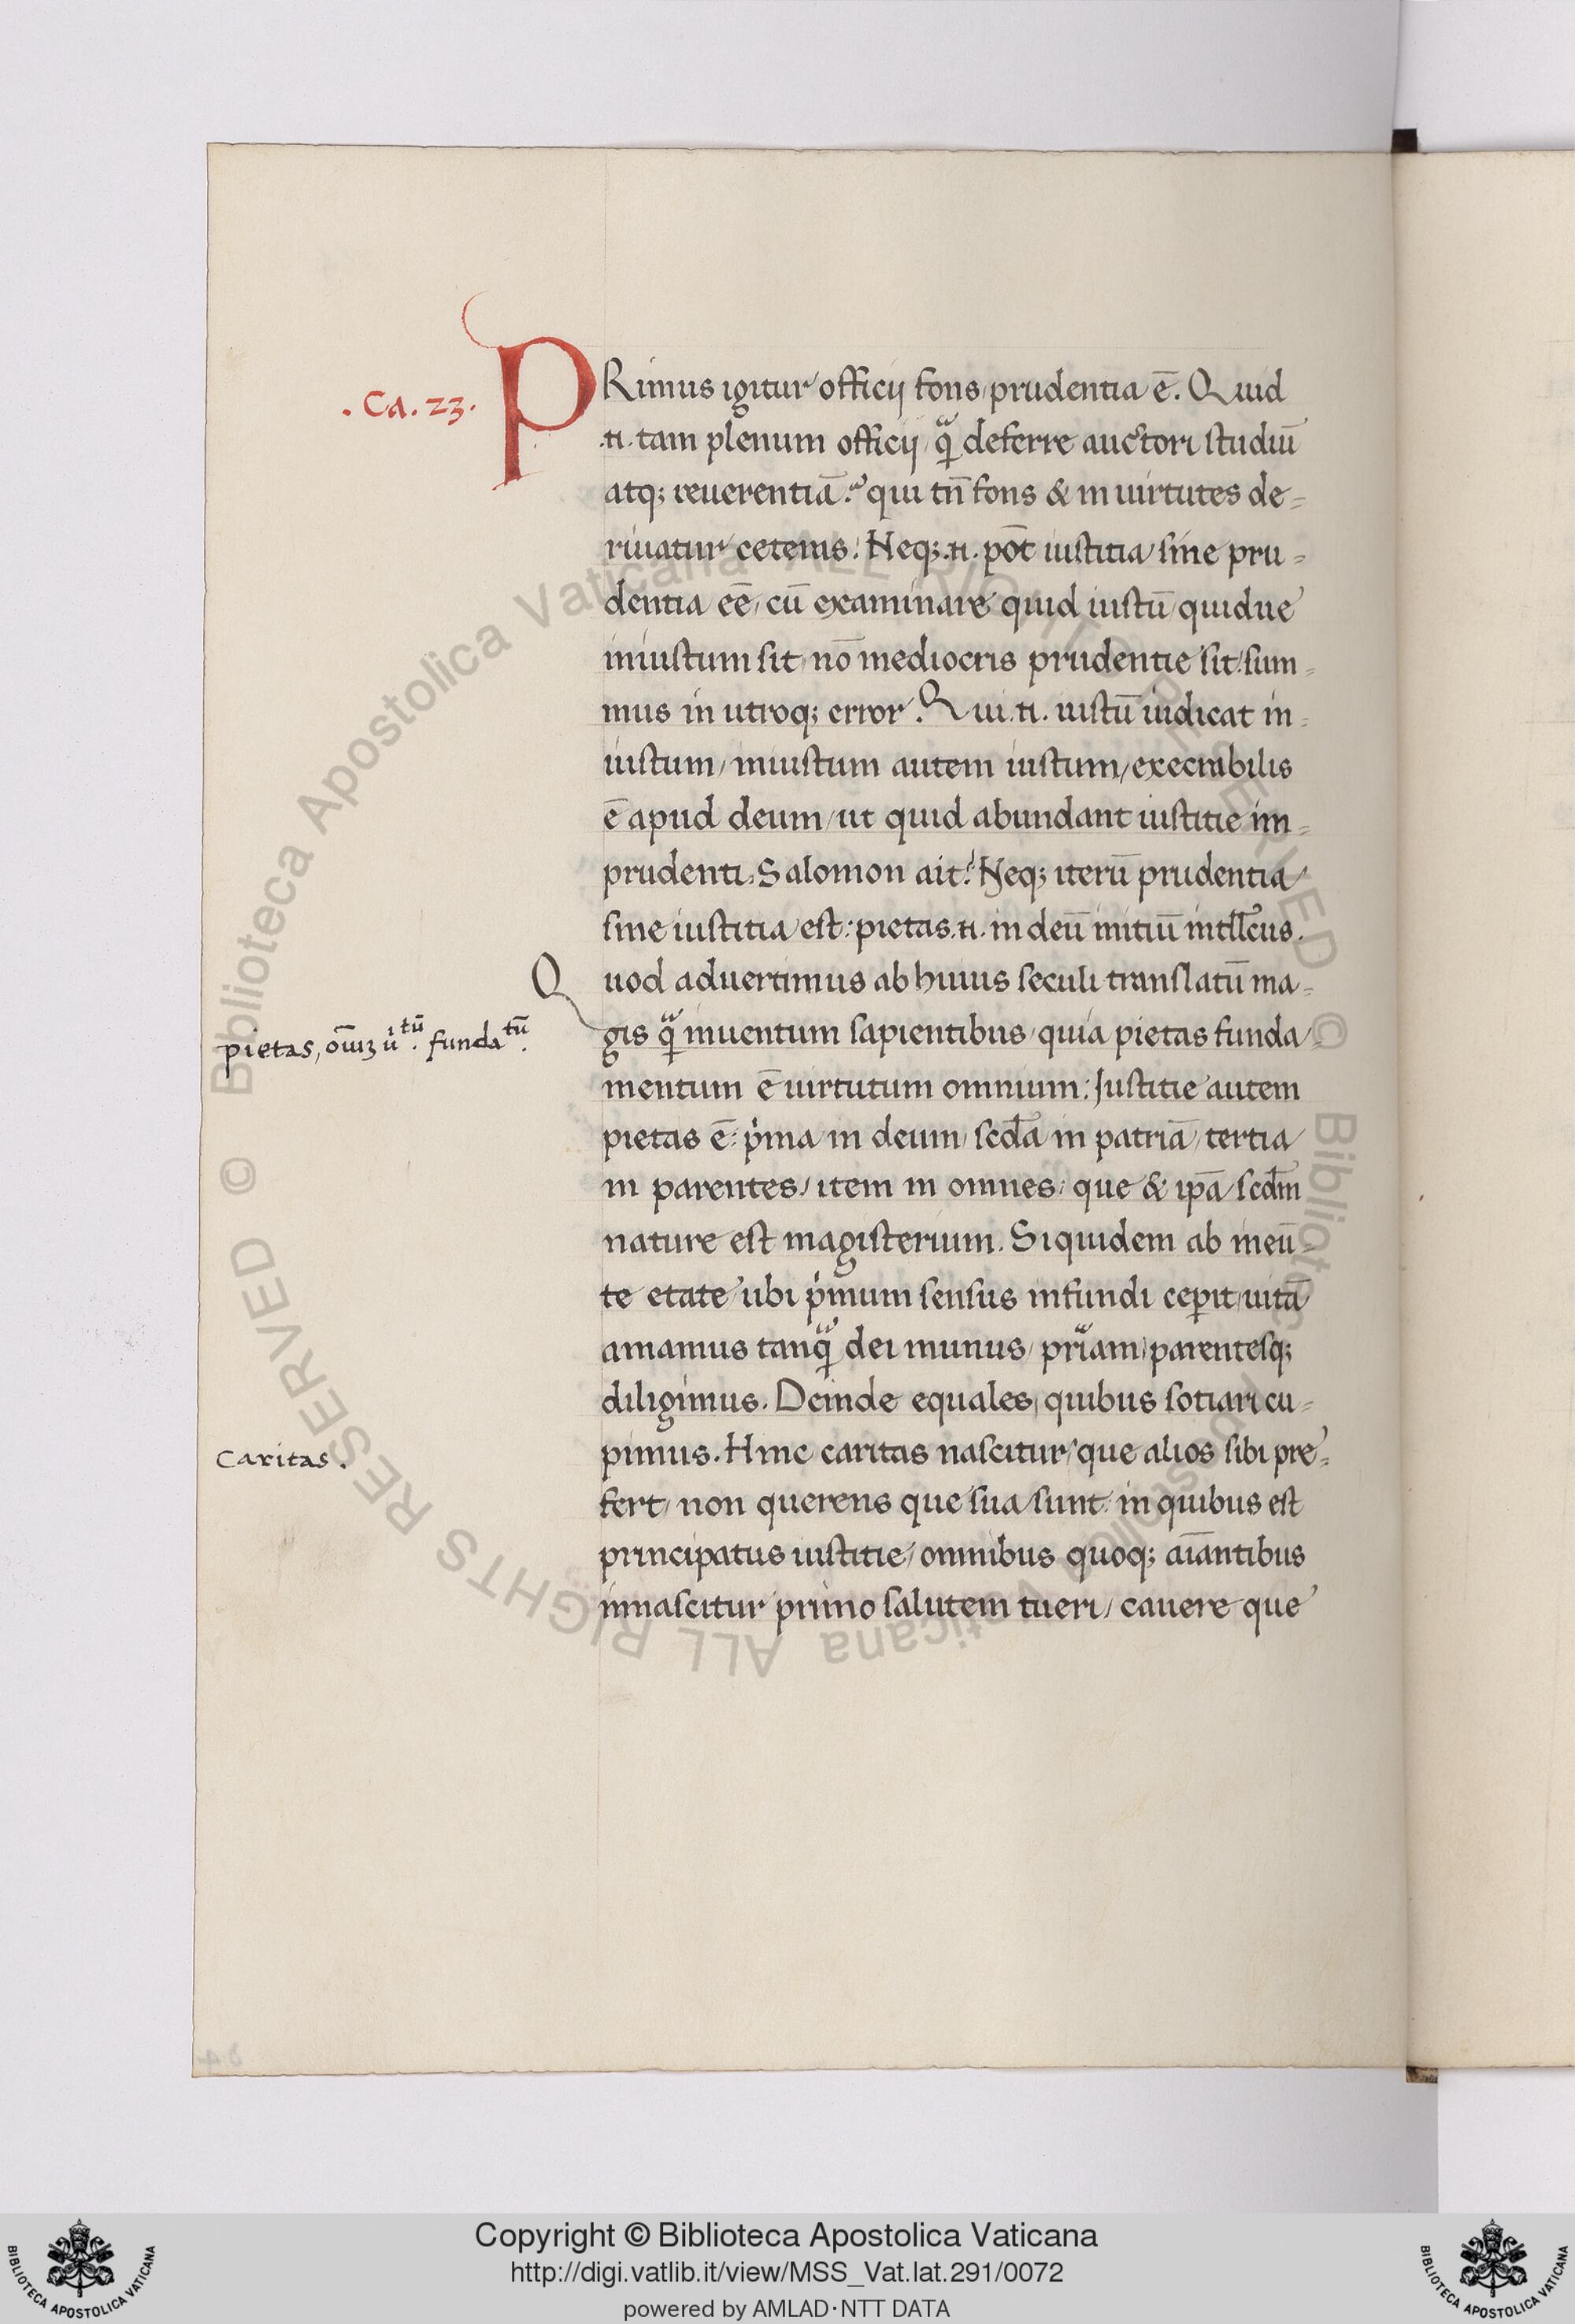 .Ca. 23.
PRimus igitur officij fons prudentia ē. Quid
.n. tam plenum officij qᷓ deferre auctori studiū
atq; reuerentiā? qui tn̄ fons & in uirtutes de-
riuatur ceteras. Neq; .n. pōt iustitia sine pru-
dentia eē, cū examinare quid iustū quidue
iniustum sit nō mediocris prudentie sit: sum-
mus in utroq; error. Qui .n. iustū iudicat in-
iustum, iniustum autem iustum, execrabilis
ē apud deum, ut quid abundant iustitie im-
prudenti, Salomon ait. Neq; iterū prudentia
sine iustitia est: pietas .n. in deū initiū intll̄cus.
Quod aduertimus ab huius seculi translatū ma-
gis qᷓ inuentum sapientibus, quia pietas funda-
pietas, oīuꝫ uⁱtū. fundatū.
mentum ē uirtutum omnium: Justitie autem
pietas ē: pͥma in deum, scd̄a in patriā, tertia
in parentes, item in omnes, que & ip̄a scd̄m
nature est magisterium. Siquidem ab ineū-
te etate ubi pͥmum sensus infundi ceperit, uitā
amamus tanqᷓ dei munus, prīam, parentesq;
diligimus. Deinde equales, quibus sotiari cu-
pimus. Hinc caritas nascitur, que alios sibi pre-
Caritas.
fert, non querens que sua sunt: in quibus est
principatus iustitie, omnibus quoq; aīantibus
innascitur primo salutem tueri, cauere que
© Biblioteca Apostolica Vaticana ALL RIGHTS RESERVED © Biblioteca Apostolica Vaticana ALL RIGHTS RESERVED
Copyright © Biblioteca Apostolica Vaticana
http://digi.vatlib.it/view/MSS_Vat.lat.291/0072
powered by AMLAD·NTT DATA
BIBLIOTECA APOSTOLICA VATICANA
BIBLIOTECA APOSTOLICA VATICANA